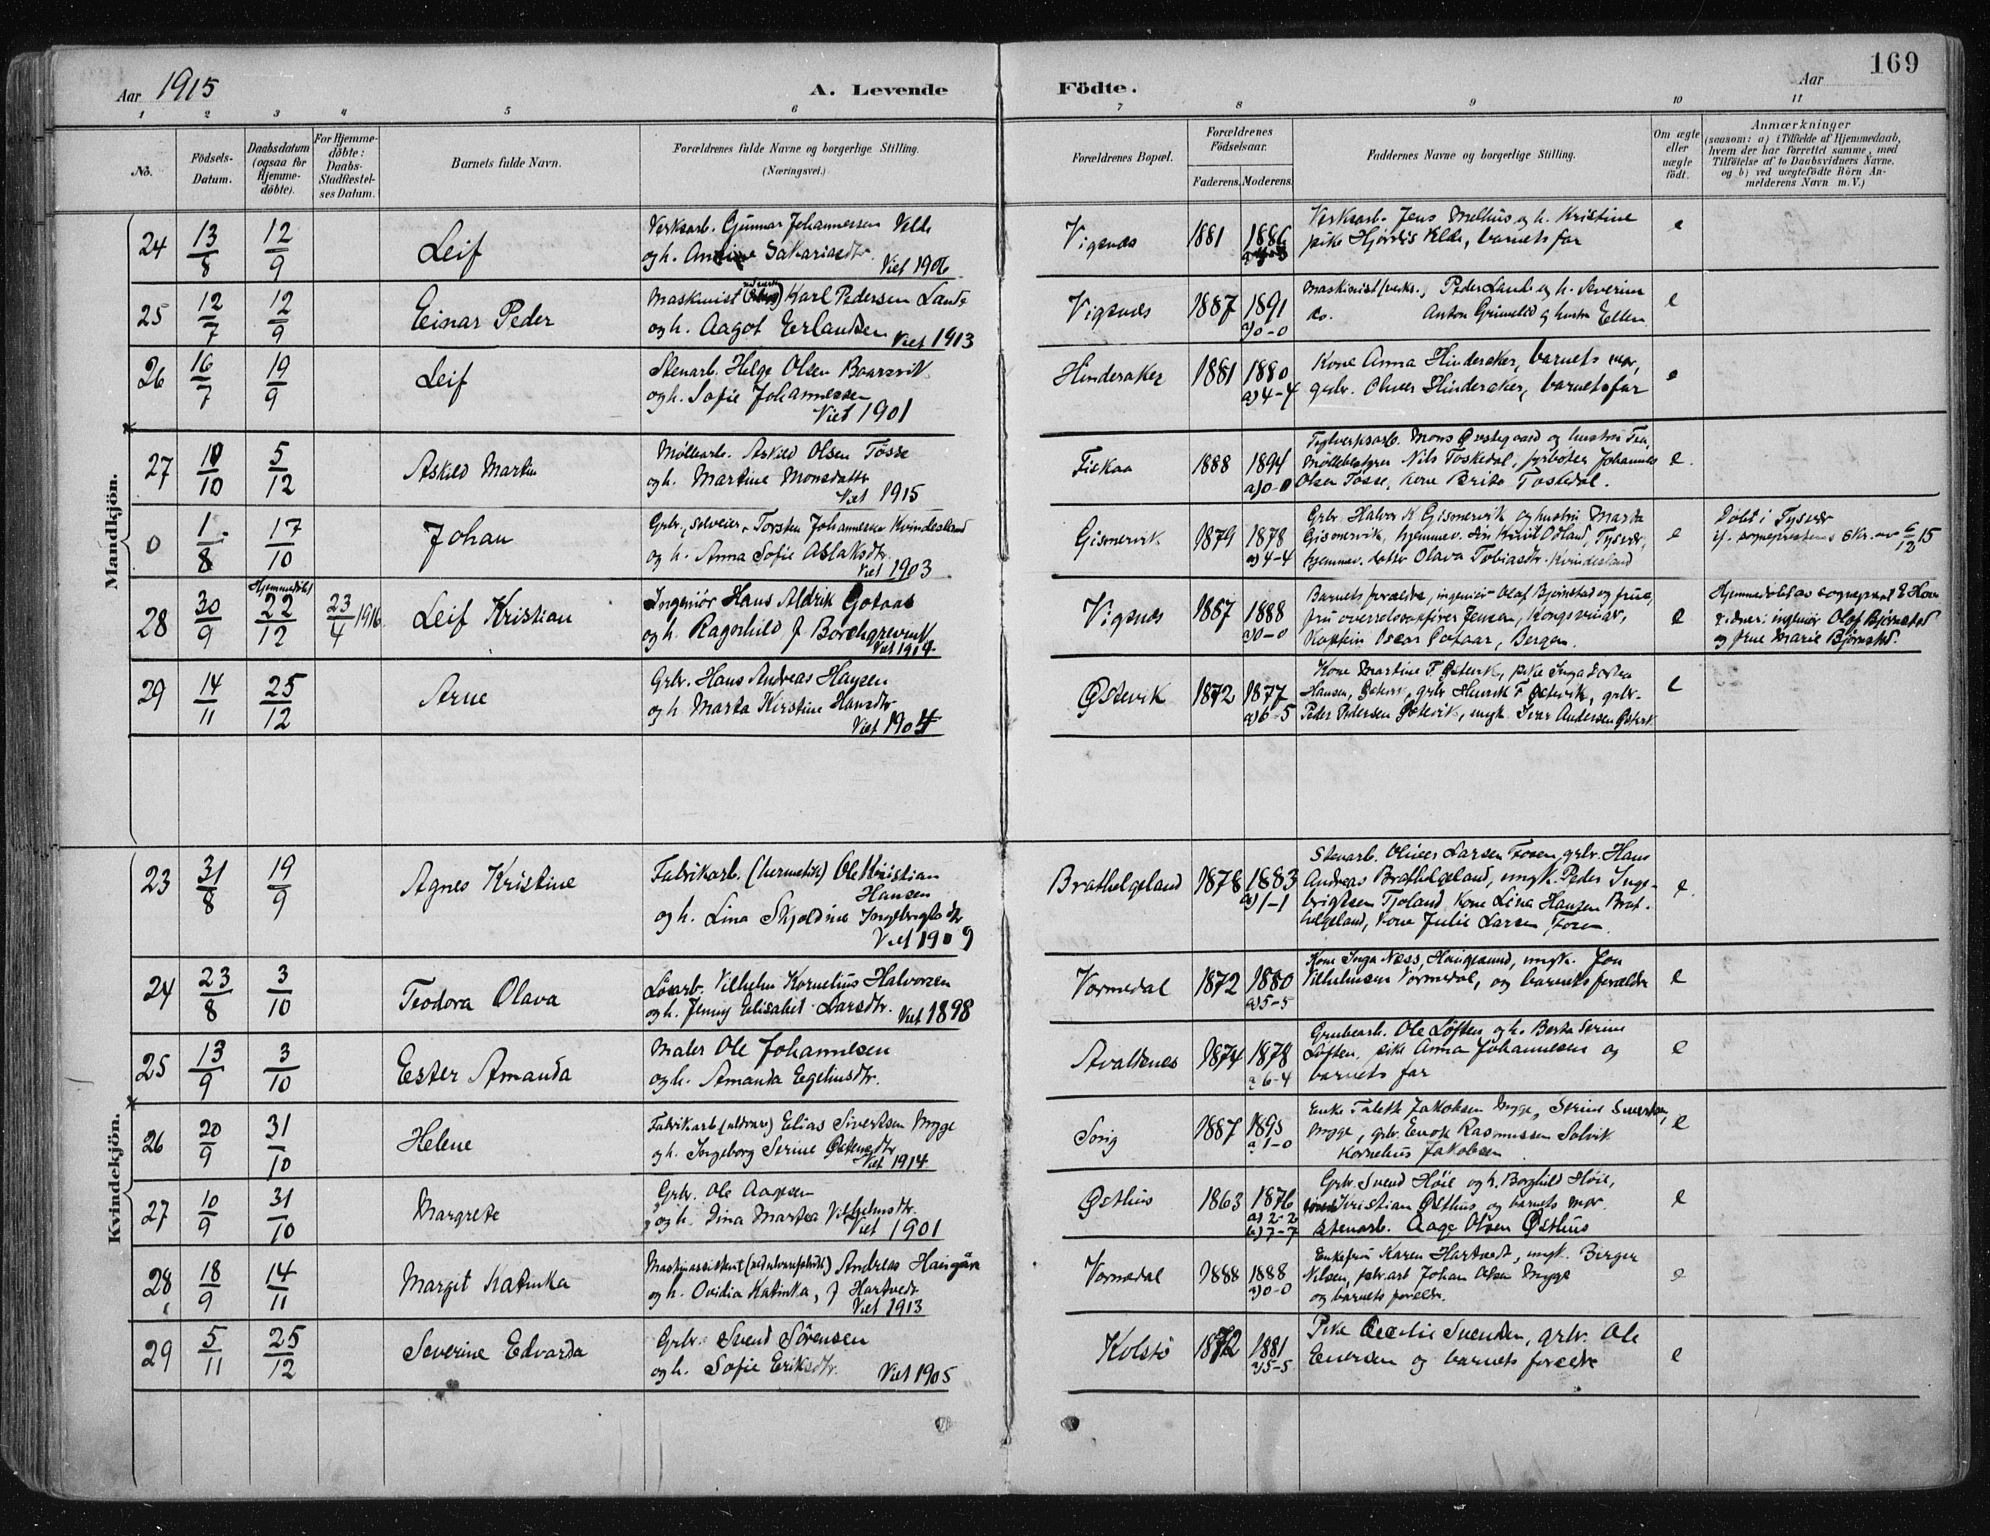 169
Aar 1915
A. Levende Födte.
Aar
1 2 3 4 5 6 7 8 9 10 11
No.
Födsels-Datum.
Daabsdatum (ogsaa for Hjemmedöbte).
For Hjemmedöbte: Daabs-Stadfæstelses Datum.
Barnets fulde Navn.
Forældrenes fulde Navne og borgerlige Stilling.
(Næringsvei.)
Forældrenes Bopæl.
Forældrenes Födselsaar.
Faderens. Moderens.
Faddernes Navne og borgerlige Stilling.
Om ægte eller uægte födt.
Anmærkninger
(saasom: a) i Tilfælde af Hjemmedaab, hvem der har forrettet samme, med Tilföielse af to Daabsvidners Navne. og b) ved uægtefödte Börn Anmelderens Navn m. V.)
Mandkjön.
24 13/8 12/9 Leif
Verksarb. Gunnar Johannessen Velde
og h. Sakariasdtr. Viet 1906
Vigsnes 1881 1886
Verksarb. Jens Melhus og h. Kristine
pike Hjørdis Velde, barnets far
e
25 12/7 12/9 Einar Peder
Maskinist Karl Pedersen Lande
og h. Aagot Erlandsen Viet 1913
Vigsnes 1887 1891
a) 0-0
Maskinist Peder Lande og h. Severine
do. Anton Grimelid og hustru Ellen
e
26 16/7 19/9 Leif
Stenarb. Helge Olsen Baarsvik
og h. Sofie Johannessen
Viet 1901
Hinderaker 1881 1880
a) 4-4
Kone Anna Hinderaker, barnets mor,
grbr. Oliver Hinderaker, barnets far
e
27 10/10 5/12 Askild Martin
Møllearb. Askild Olsen Tøsse
og h. Martine Monsdatter
Viet 1915
Fiskaa 1888 1894
a) 0-0
Teglverksarb. Mons Østegaard og hustru Tea,
Møllebestyrer Nils Toskedal, fyrbøter Johannes
Olsen Tøsse, kone Brita Toskedal.
e.
0 1/8 17/10 Johan
Grbr., selveier, Torsten Johannesen Kvindesland
og h. Anna Sofie Aslaksdtr.
Viet 1903
Gismervik 1879 1878
a) 4-4
Grbr. Halvor K Gismervik og hustru Marta
Gismervik, hjemmev. søn Knut Odland, Tysvær,
hjemmev. datter Olava Tobiasdtr. Kvindesland
e
Døbt i Tysvær
if. sogneprestens skr. av 6/12 15
28 30/9 Hjemmedøbt 22/12 23/4 1916 Leif Kristian
Ingeniør Hans Aldrik Gotaas
og h. Ragnhild f Borchgrevink
Viet 1914
Vigsnes 1887 1888
a) 0-0
Barnets forældre, ingeniør Olaf Bjørnstad og frue,
fru Jensen, Kongsvinger,
Kaptein Oscar Gotaas, Bergen.
e
Hjemmedøbt av sogneprest E Hov
vidner: ingeniør Olaf Bjørnstad
og frue Marie Bjørnstad.
29 14/11 25/12 Arne
Grbr. Hans Andreas Haysen
og h. Marta Kirstine Hansdtr.
Viet 1904
Østevik 1872 1877
a) 6-5
Kone Martine F. Østevik, pike Inga
Hansen, Østevik, grbr Henrik F Østevik, grbr.
Peder Pedersen Østevik, ungk. Iver Andersen Østevik
e
Kvindekjön.
23 31/8 19/9 Agnes Kristine
Fabrikarb. (hermetik) Ole Kristian
Hansen
og h. Lina Skjoldine Ingebrigtsdtr
Viet 1909
Brathelgeland 1878 1883
a) 1-1
Stenarb. Oliver Larsen Fosen, grbr. Hans
Andreas Brathelgeland, ungk. Peder Inge-
brigtsen Tjoland, Kone Lina Hansen Brat-
helgeland, Kone Julie Larsen Fosen.
e.
24 23/8 3/10 Teodora Olava
Løsarb. Vilhelm Kornelius Halvorsen
og h. Jenny Elisabet Larsdtr. Viet 1898
Vormedal 1872 1880
a) 5-5
Kone Inga Næss, Haugesund, ungk. Jon
Vilhelmsen Vormedal, og barnets forældre
e
25 13/9 3/10 Ester Amanda
Maler Ole Johannesen
og h. Amanda Egeliusdtr.
Avaldsnes 1874 1878
a 6-4
Grubearb. Ole Løften og h. Berta Serine
Løften, pike Anna Johannesen og
barnets far
e
26 20/9 31/10 Helene
Fabrikarb (uldvare) Elias Sivertsen Myge
og h. Ingeborg Serine
Viet 1914
Sørig 1887 1893
a 1-0
Enke Taleth Jakobsen Myge, Serine Sivertsen,
Myge, grbr. Enok Rasmussen Solvik
Kornelius Jakobsen
e
27 10/9 31/10 Margrete
Grbr. Ole Aagesen
og h. Dina Martea Vilhelmsdtr.
Viet 1901
Østhus 1863 1876
a) 2-2
b) 7-7
Grbr Svend Høie og h. Borghild Høie,
Kristian Østhus og barnets mor
stenarb. Aage Olsen Østhus
e
28 18/9 14/11 Margit Katinka
Maskinassistent Andreas
og h. Ovidia Katinka, f Hartvedt
Viet 1913
Vormedal 1888 1888
a) 0-0
Enkefru Karen Hartvedt, ungk. Berger
Nilsen, Johan Olsen Myge
og barnets foreldre.
e
29 5/11 25/12 Severine Edvarda
Grbr. Svend Sørensen
og h. Sofie Eriksdtr. Viet 1905
Kolstø 1872 1881
a) 5-5
Pike Cecilie Svendsen, grbr. Ole
Enersen og barnets forældre
e